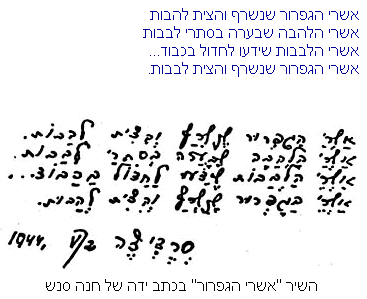 אשרי הגפרור שנשרף והצית להבות
אשרי הלהבה שבערה בסתרי לבבות
אשרי הלבבות שידעו לחדול בכבוד...
אשרי הגפרור שנשרף והצית לבבות.
אשרי הגפרור שנשרף והצית להבות.
אשרי הלהבה שבערה בסתרי לבבות.
אשרי הלבבות שידעו לחדול בכבוד...
אשרי הגפרור שנשרף והצית להבות.
סרדיצה 1944.
השיר "אשרי הגפרור" בכתב ידה של חנה סנש